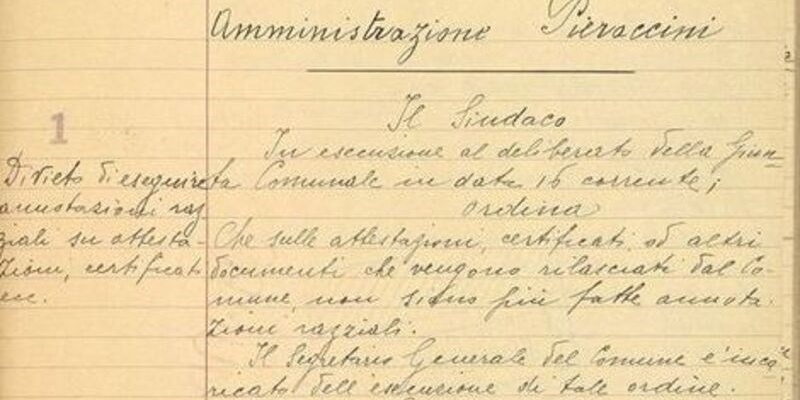 Amministrazione Pieraccini
1
Divieto di eseguire
annotazioni raz
ziali su attesta-
zioni, certificati
ecc.
Il Sindaco
In esecuzione al deliberato della Giun=
ta Comunale in data 16 corrente;
ordina
Che sulle attestazioni, certificati od altri
documenti che vengono rilasciati dal Co-
mune, non siano più fatte annota-
zioni razziali.
Il Segretario Generale del Comune è inca
ricato dell'esecuzione di tale ordine.